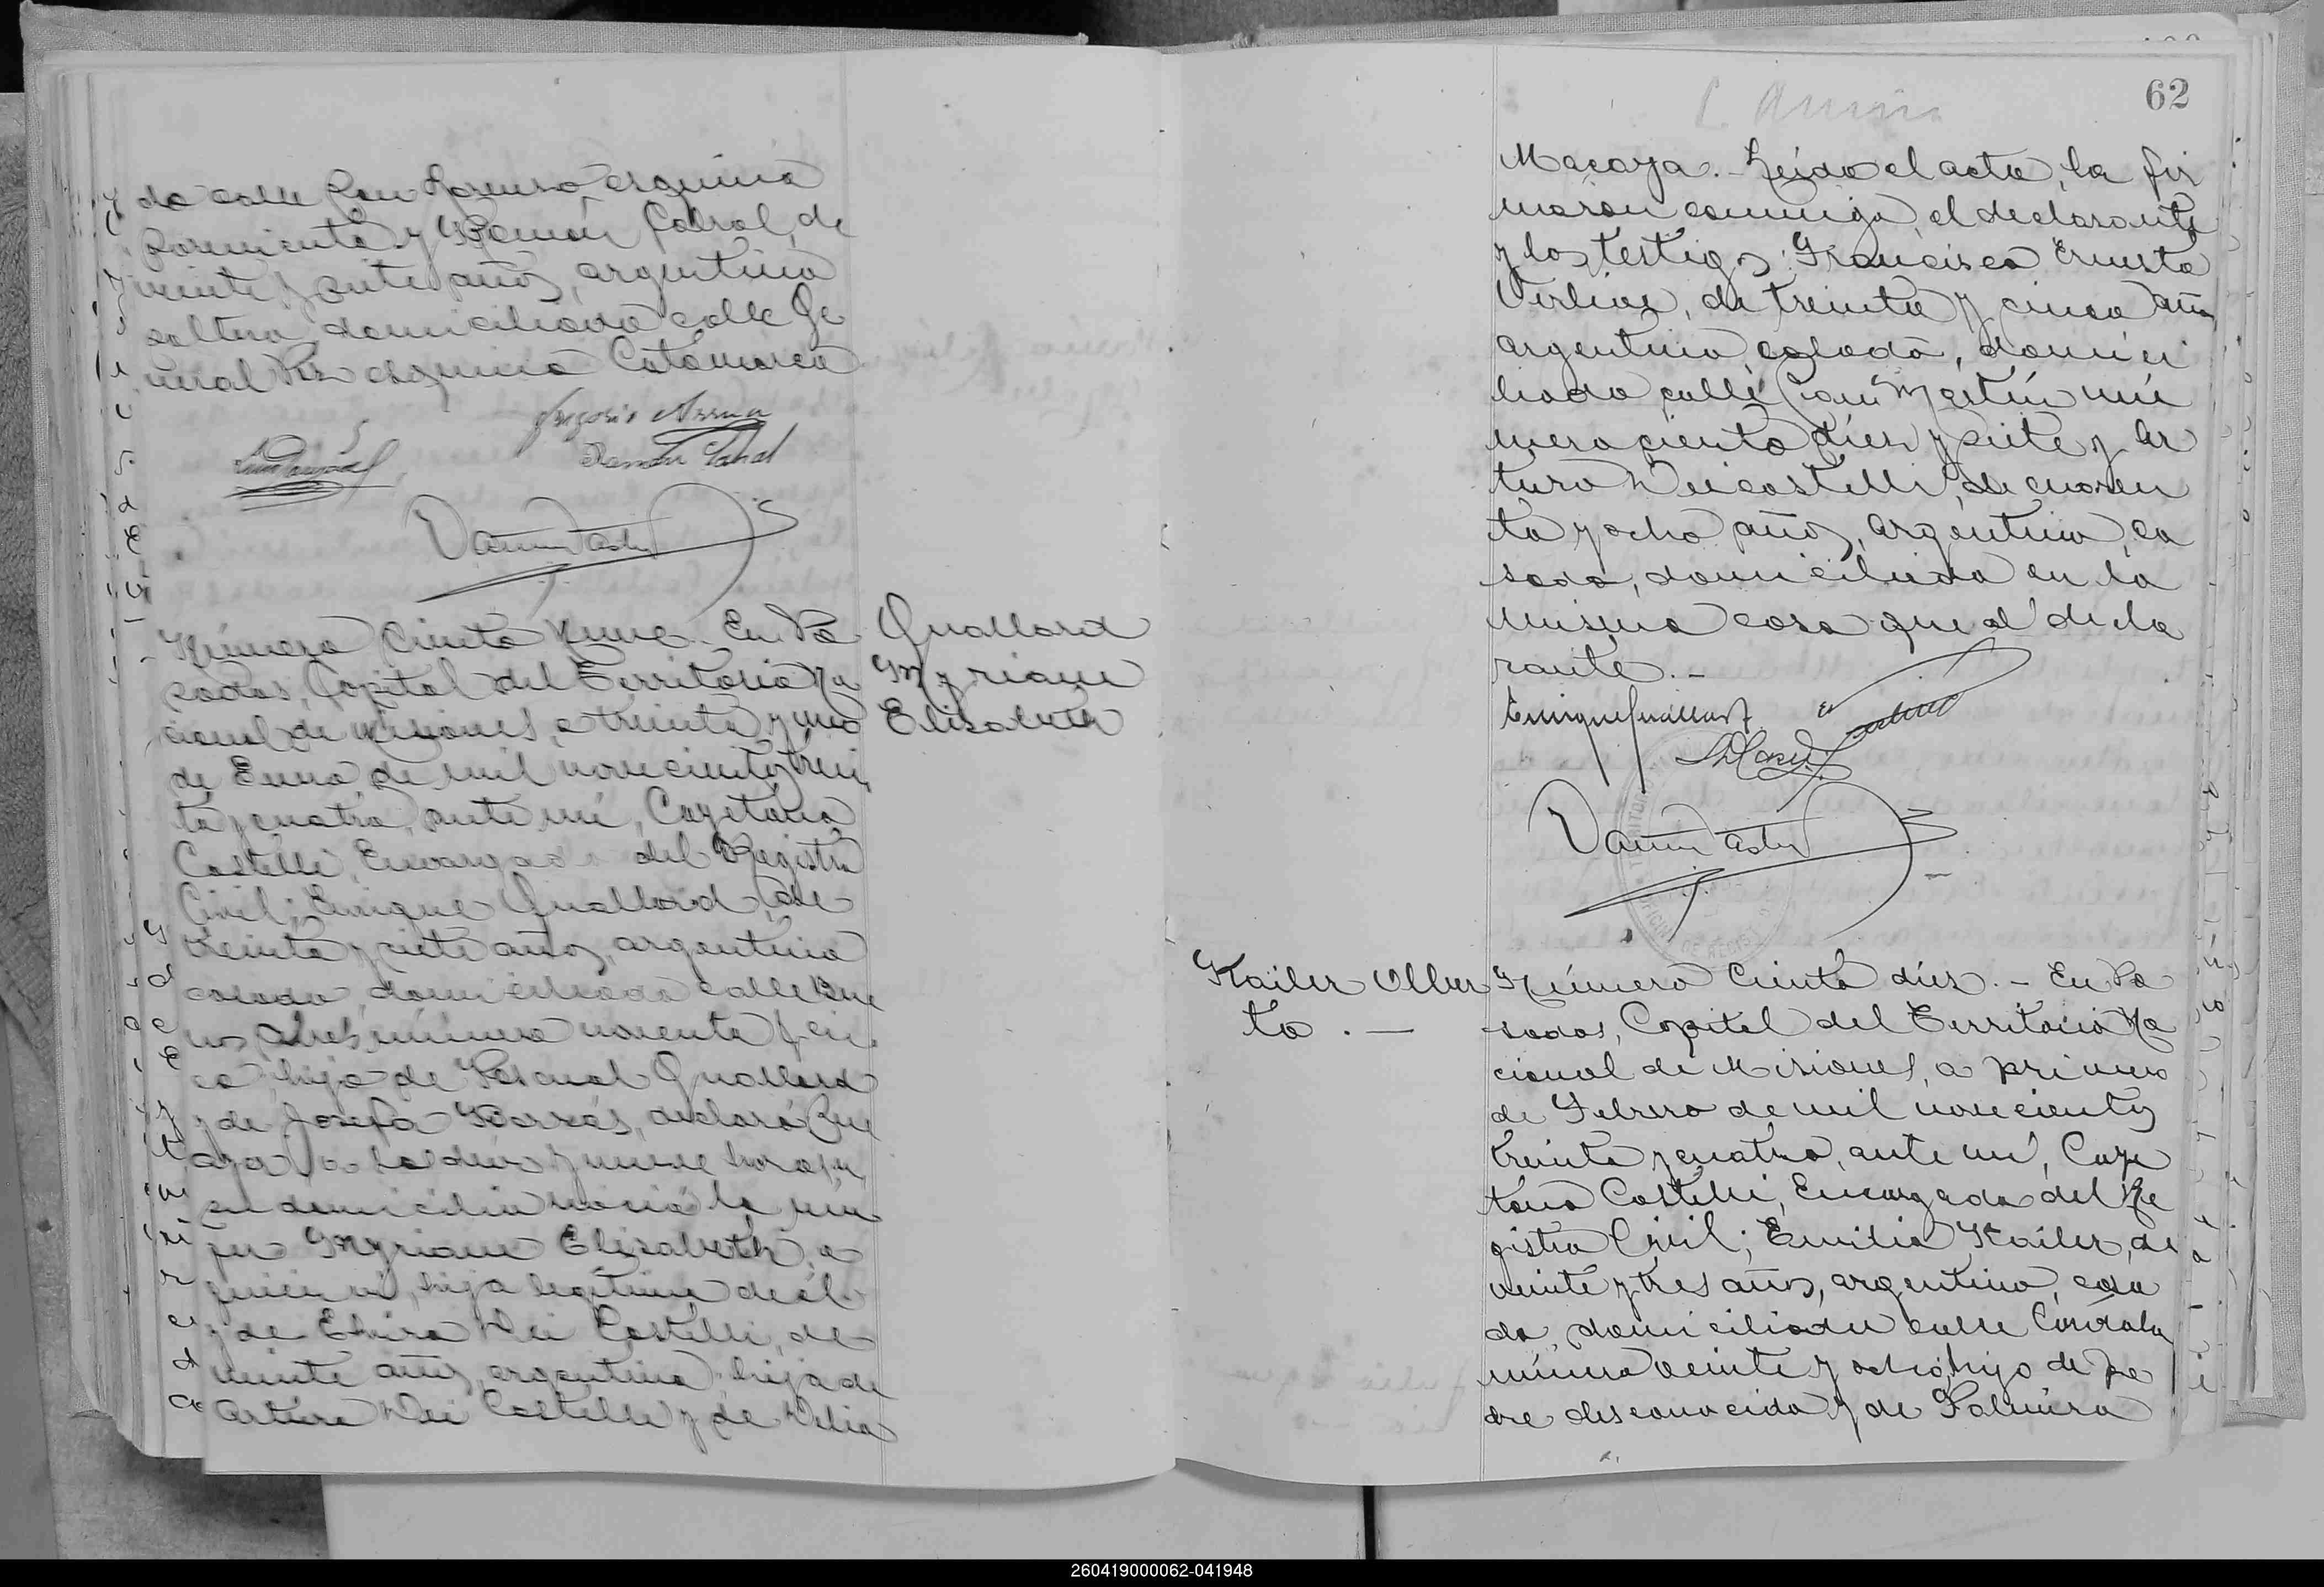 do calle San Lorenzo esquina
Sarmiento y Ramón Cabral, de
veinte y siete años, argentino
soltero, domiciliado calle Ge
neral Paz esquina Catamarca
Gregorio
Ramón Cabral
Número Ciento Nueve. En Po
sadas, Capital del Territorio Na
cional de Misiones, a treinta y uno
de Enero de mil novecientos trein
ta y cuatro, ante mí, Cayetano
Castelli, Encargado del Registro
Civil; Enrique Guallard, de
treinta y siete años, argentino
casado, domiciliado calle Bue
nos Aires número noventa y cin
co, hijo de Pascual Guallard
y de Josefa declaró: Que
ayer a las diez y nueve horas, en
su domicilio nació la mu
jer Myriam Elisabeth, a
quien vi, hija legítima de él
y de Elvira Dei Castelli, de
veinte años, argentina, hija de
Arturo Dei Castelli y de Delia
Guallard
Myriam
Elisabeth
62
Macaya.- Leída el acta, la fir
maron conmigo, el declarante
y los testigos: Francisco Ernesto
de treinta y cinco años
argentino, casado, domici
liado calle San Martín nú
mero ciento diez y siete y Ar
turo Deicastelli, de cuaren
ta y ocho años, argentino, ca
sado, domiciliado en la
misma casa que el decla
rante.-
Enrique Guallard
Kailer Olber
to.—
Número Ciento diez.- En Po
sadas, Capital del Territorio Na
cional de Misiones, a primero
de Febrero de mil novecientos
treinta y cuatro, ante mí, Caye
tano Castelli, Encargado del Re
gistro Civil; Emilio Kailer, de
veinte y tres años, argentino, casa
do, domiciliado calle Córdoba
número veinte y ocho, hijo de pa
dre desconocido y de Palmira
260419000062-041948